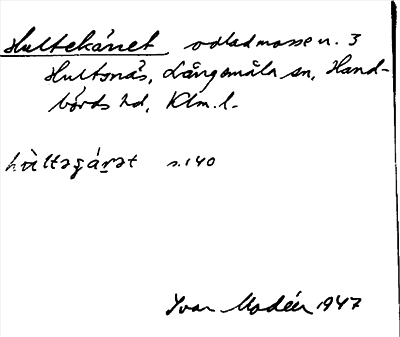 Hultekärret odlad mosse n. 3
Hultsnäs, Långemåla sn, Hand-
börds hd, Klm. l.
hùltəçä́rət s.140
Ivar Modéer 1947